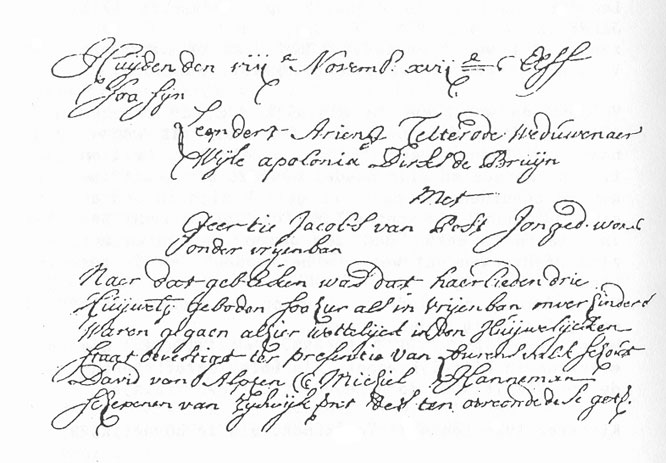 Huijden den viij Novemb. xvij Elff
soo sijn
Leendert Ariens Telterode weduwenaer
Wijle apolonia Dirks de Bruijn
Met
Geertie Jacobs van Post Jonged. won.
onder vrijenban
Naer dat gebleken was dat haerlieden drie
Huijwel. geboden soo hier als in vrijenban onverhindert
Waren gegaen alhier wettelijck in den Huijwelijcken
staat bevestigt ter presentie van schout
David van Alphen Michiel Hanneman
schepenen van Rijswijk